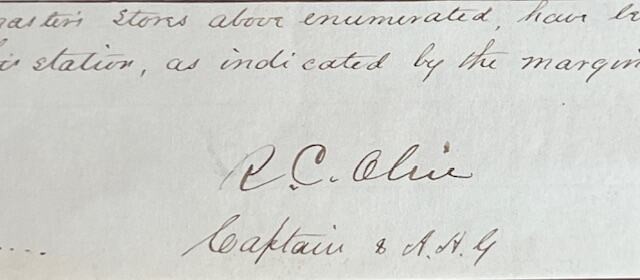 master's Stores above enumerated, have be
his station, as indicated by the margin
R. C.
Captain & A. A. G
....